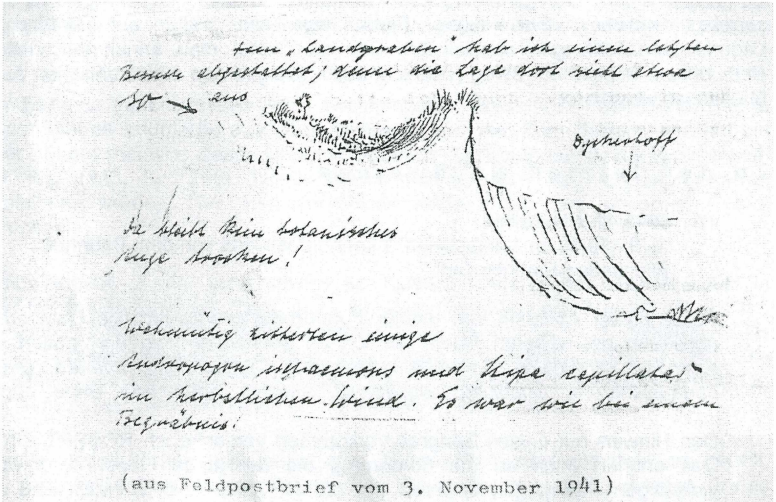 dem „Landgraben" hab ich einen letzten
Besuch abgestattet; denn die Lage dort sieht etwa
so → aus
Dyckerhoff
Da bleibt kein botanisches
Auge trocken!
Wehmütig zitterten einige
Andropogon ischaemons und Stipa capillatas
im herbstlichen Wind. Es war wie bei einem
Begräbnis.
(aus Feldpostbrief vom 3. November 1941)